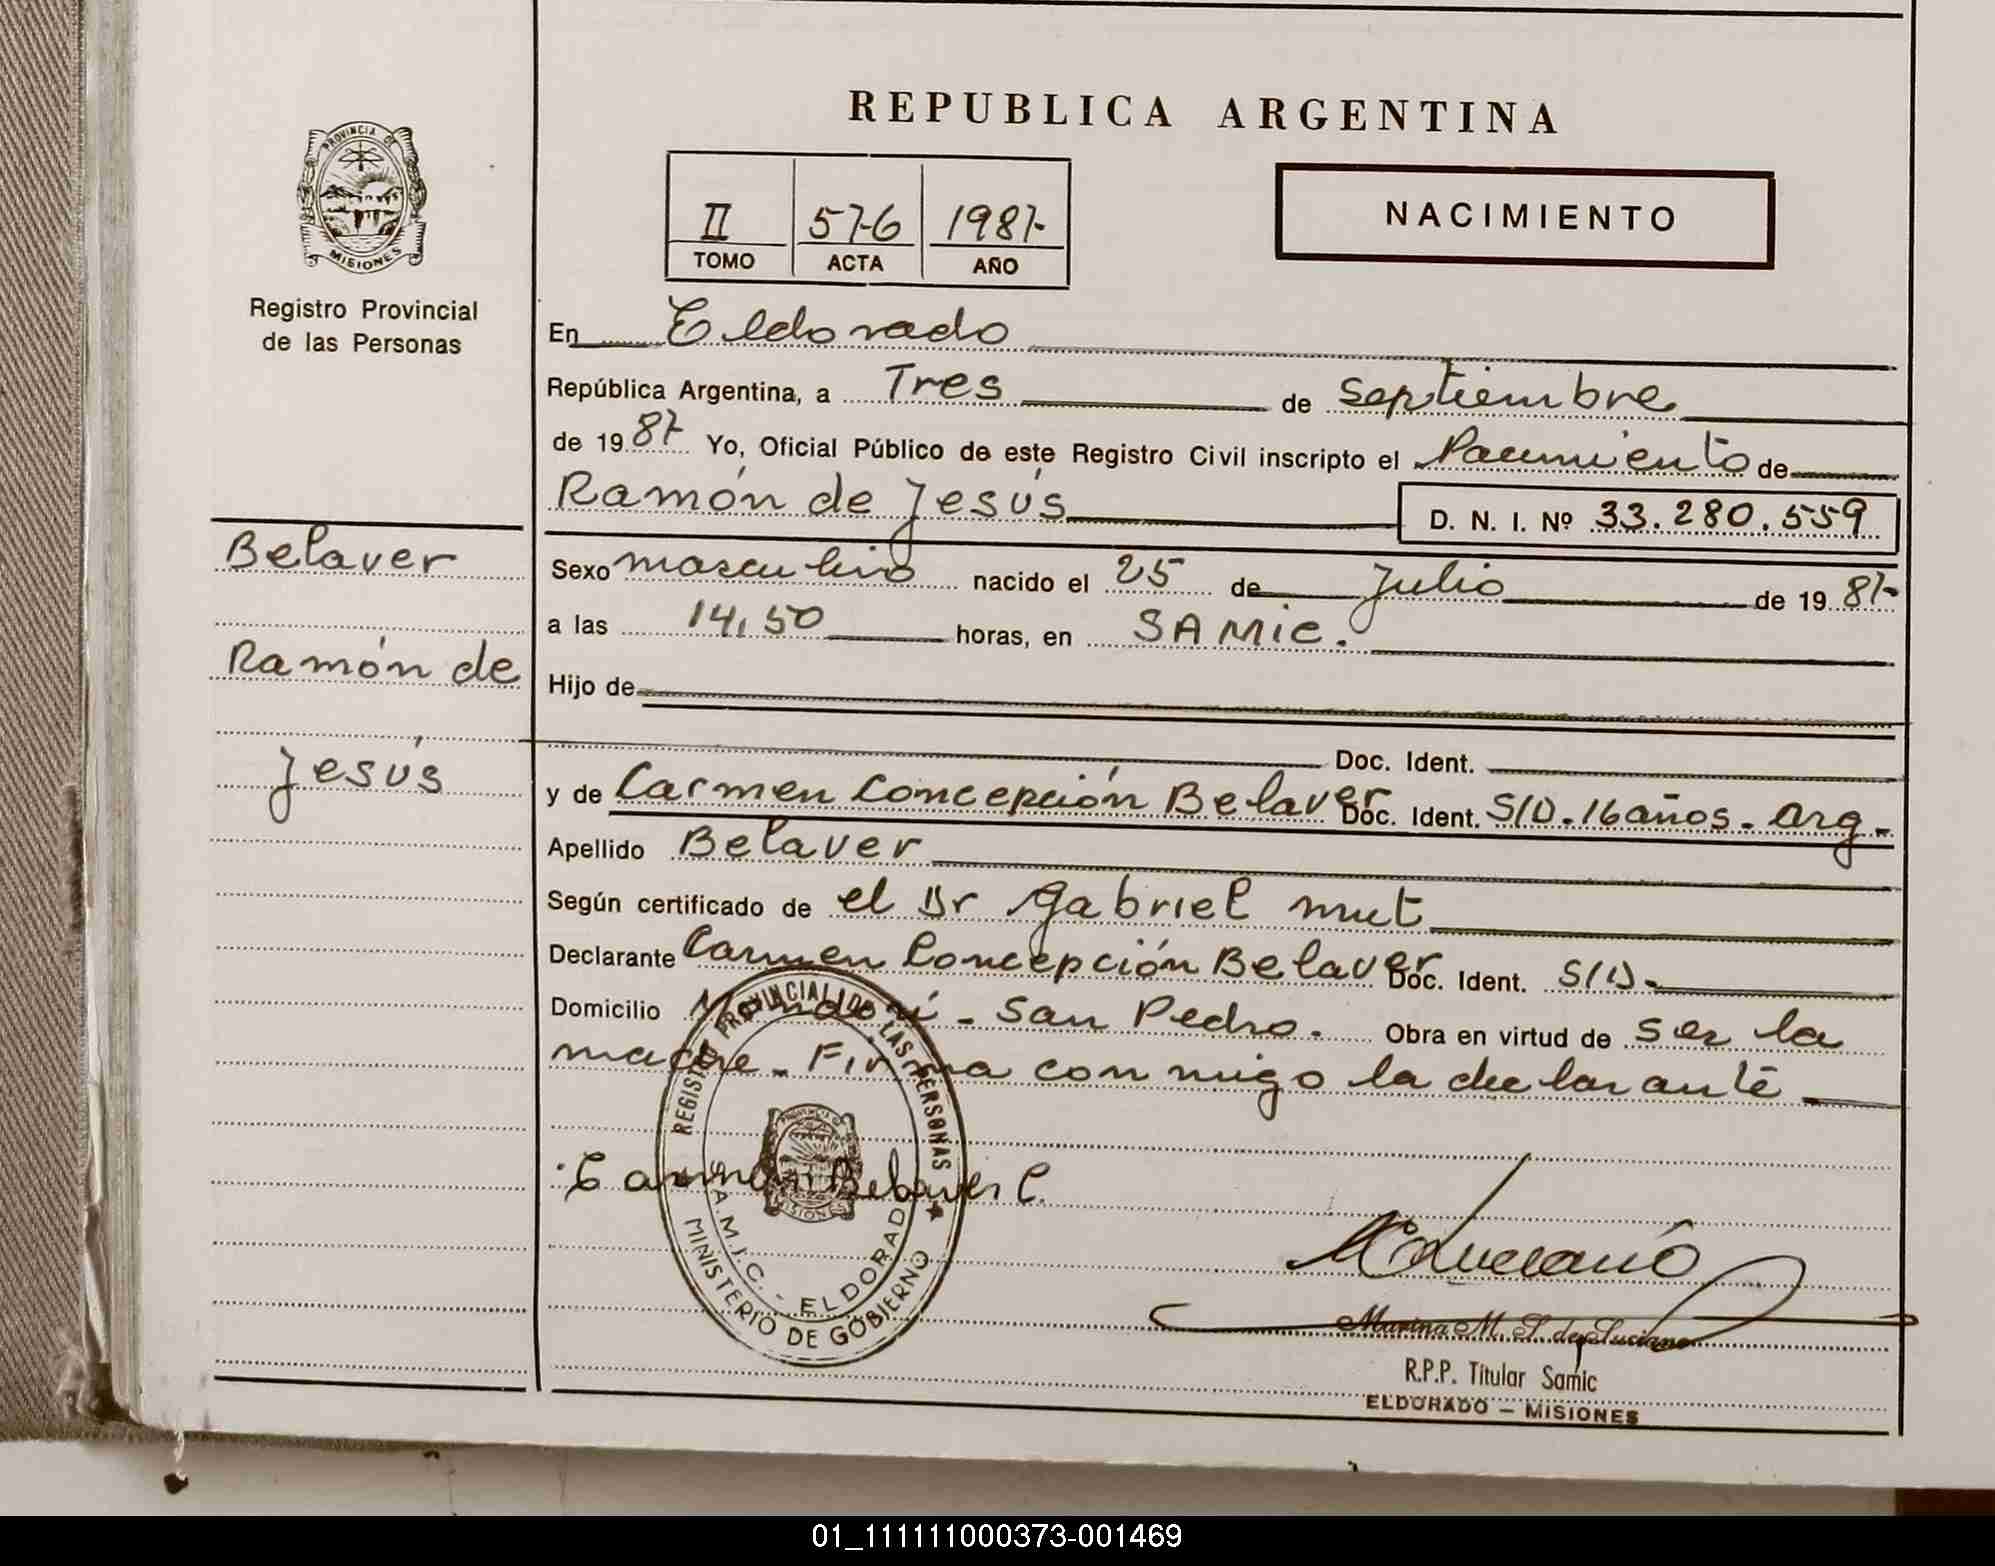 REPUBLICA ARGENTINA
PROVINCIA DE MISIONES
II 576 1987-
TOMO ACTA AÑO
NACIMIENTO
Registro Provincial
de las Personas
En Eldorado
República Argentina, a Tres de septiembre
de 1987 Yo, Oficial Público de este Registro Civil inscripto el Nacimiento de
Ramón de Jesús D. N. I. Nº 33.280.559
Belaver
Ramón de
Jesús
Sexo masculino nacido el 25 de Julio de 1987-
a las 14,50 horas, en SAMic.
Hijo de
Doc. Ident.
y de Carmen Concepción Belaver Doc. Ident. S/D. 16 años. arg.
Apellido Belaver
Según certificado de el Dr Gabriel Mut
Declarante Carmen Concepción Belaver Doc. Ident. S/D.
Domicilio - San Pedro. Obra en virtud de ser la
madre. Firma conmigo la declarante
Carmen Belaver C.
REGISTRO PROVINCIAL DE LAS PERSONAS
PROVINCIA DE MISIONES
S.A.M.I.C. - ELDORADO
MINISTERIO DE GOBIERNO
Marina M. S. de Luciano
R.P.P. Titular Samic
ELDORADO - MISIONES
01_111111000373-001469